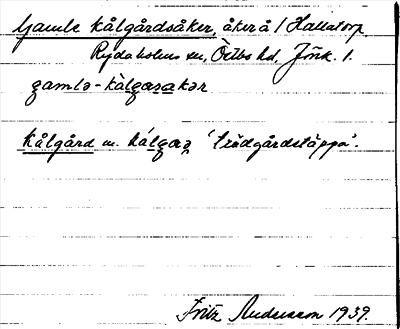 Gamle kålgårdsåker, åker å 1 Hallatorp
Rydaholms sn, Östbo hd, Jönk. l.
gamlə-kàlgaʀakər
kålgård m. kálgaʀ 'trädgårdstäppa'.
Fritz Andersson 1939.